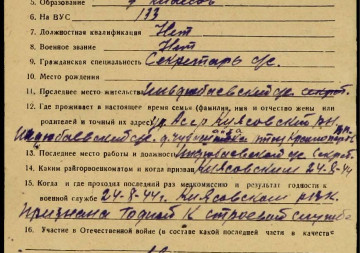 5. Образование 7 классов
6. На ВУС 133
7. Должностная квалификация Нет
8. Военное звание Нет
9. Гражданская специальность Секретарь с/с.
10. Место рождения
11. Последнее место жительства с/с. секрет.
12. Где проживает в настоящее время семья (фамилия, имя и отчество жены или
родителей и точный их адрес) Киясовский р-н
с/с. д.
13. Последнее место работы и должность с/с. Секрет.
14. Каким райгорвоенкоматом и когда призван Киясовским 24-8-44
15. Когда и где проходил последний раз медкомиссию и результат годности к
военной службе 24-8-44г. Киясовском РВК.
признана годной к строевой службе
16. Участие в Отечественной войне (в составе какой последней части и в качестве